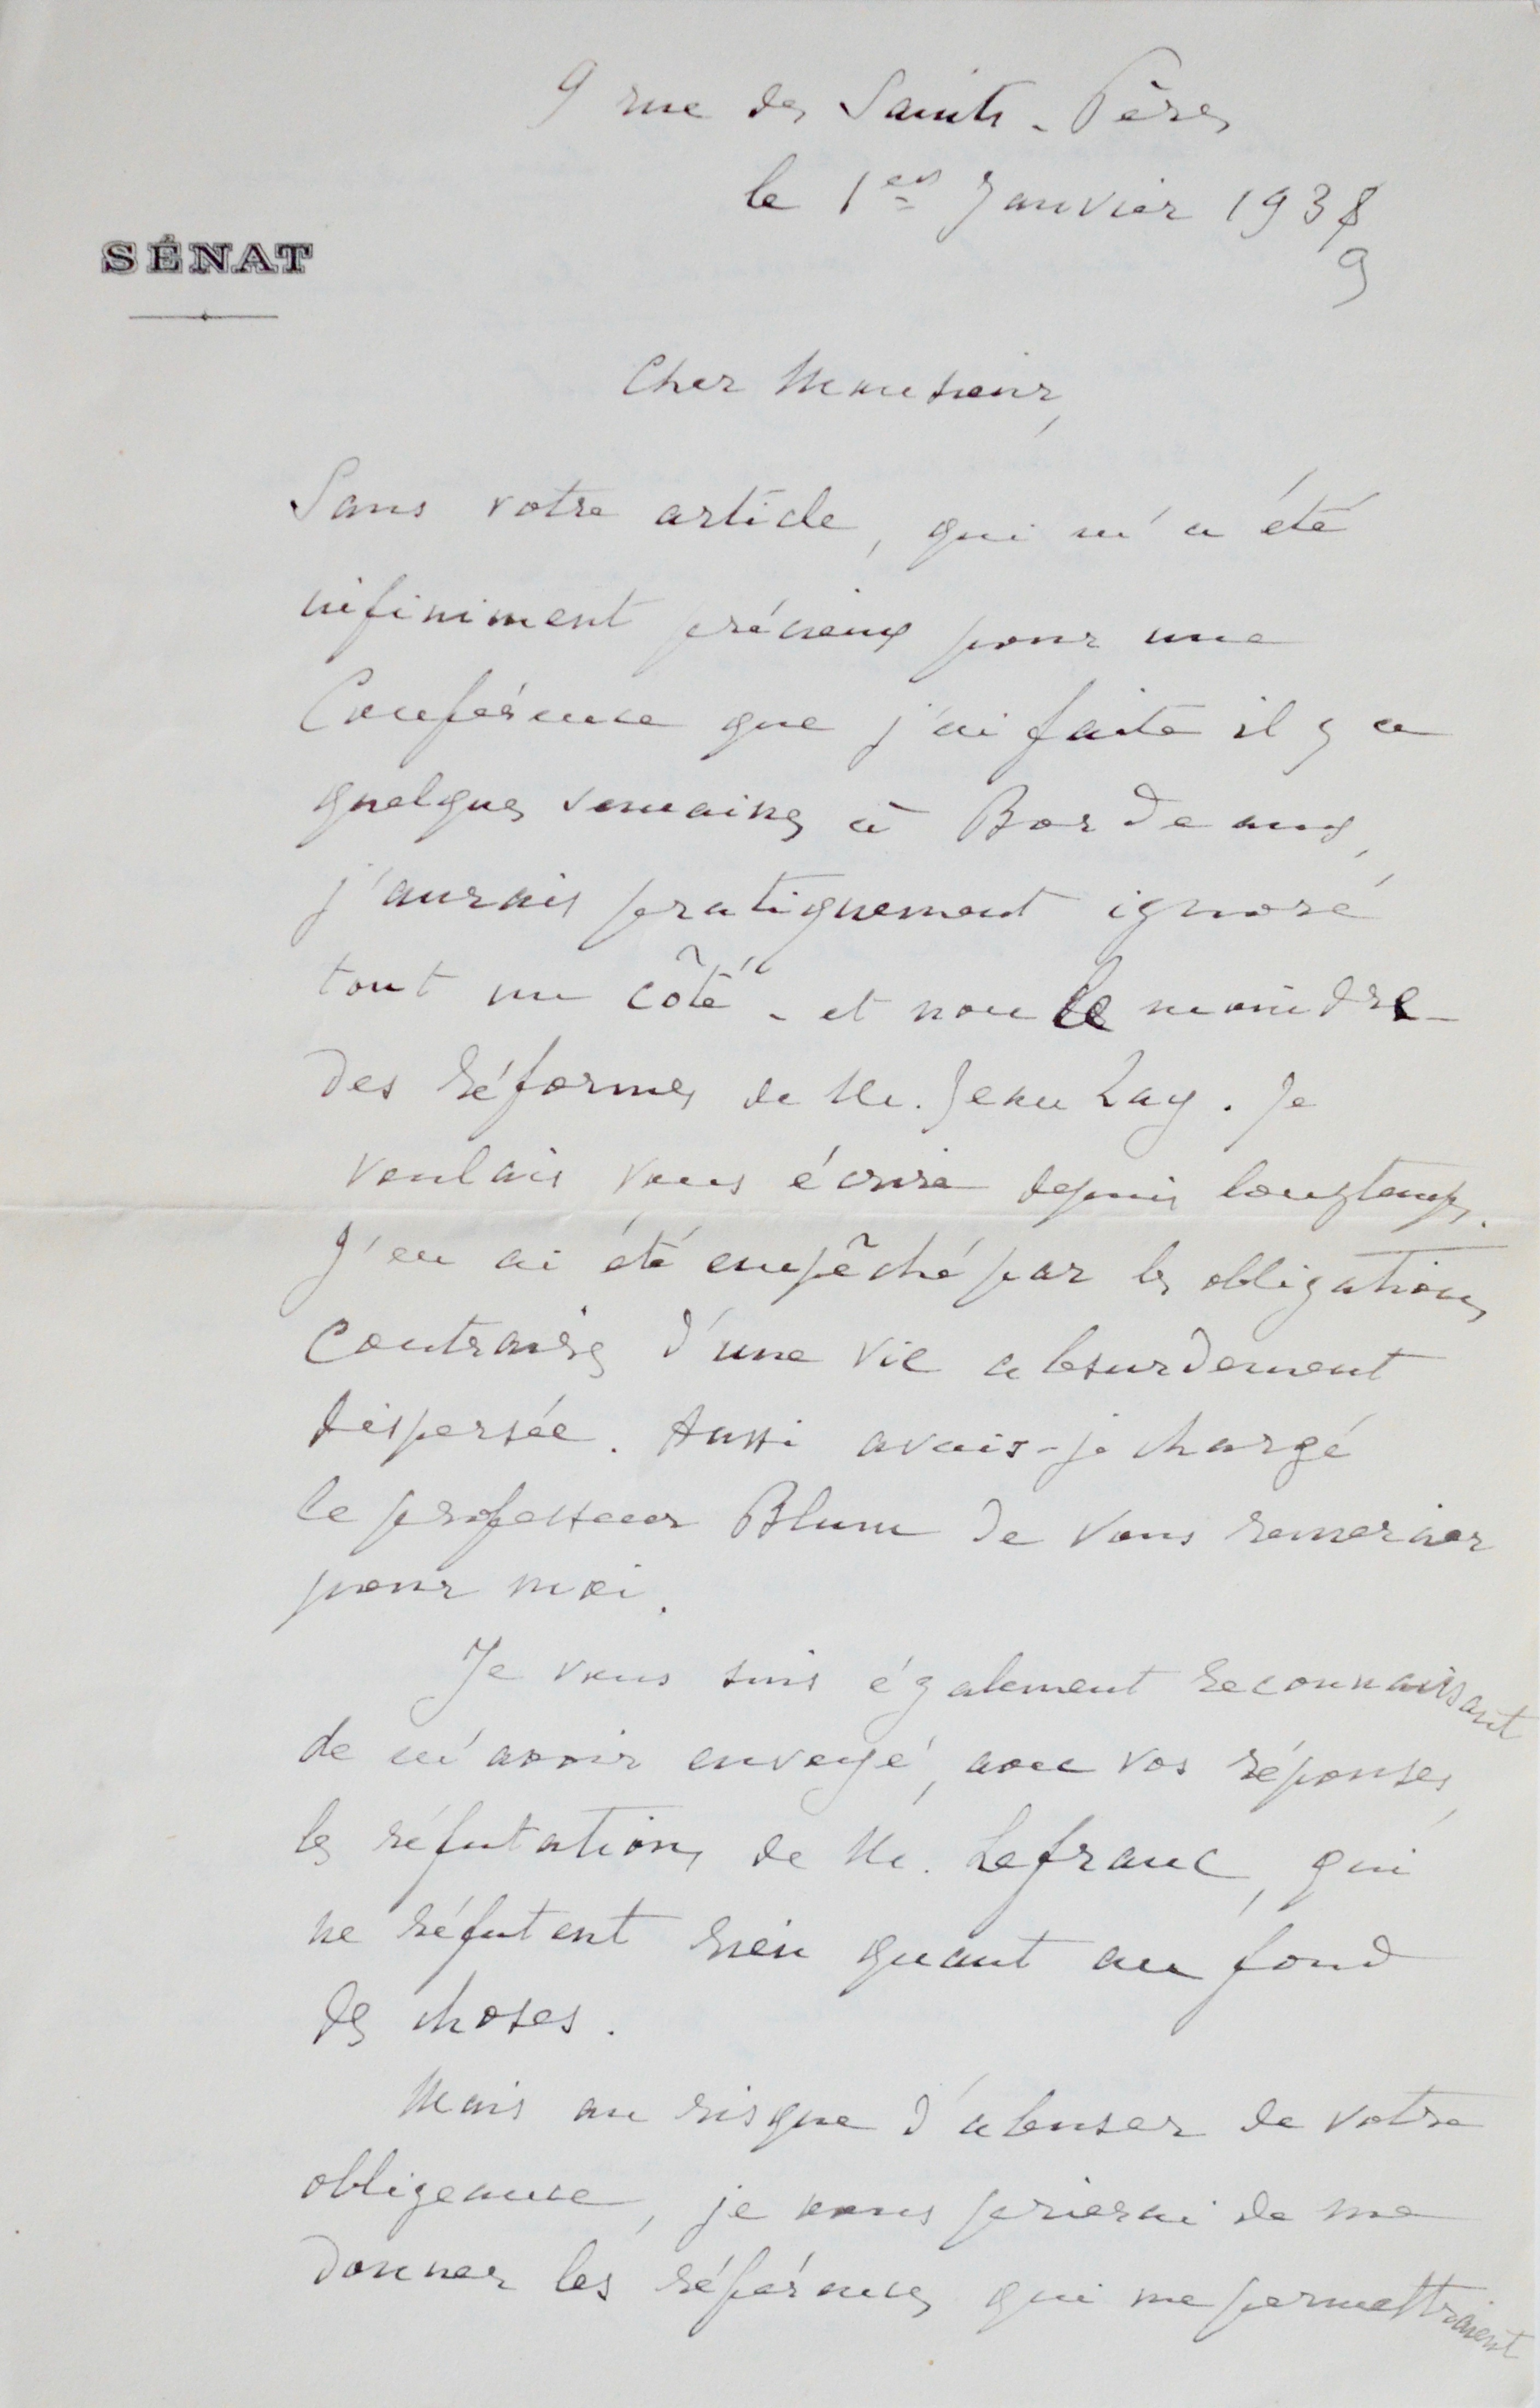 9 rue des Saints-Pères
le 1er Janvier 1938
9
SÉNAT
Cher Monsieur,
Sans votre article, qui m'a été
infiniment précieux pour une
Conférence que j'ai faite il y a
quelques semaines à Bordeaux,
j'aurais pratiquement ignoré
tout un côté - et non le moindre -
des réformes de M. Jean Zay. Je
voulais vous écrire depuis longtemps.
J'en ai été empêché par les obligations
contraires d'une vie absurdement
dispersée. Aussi avais-je chargé
le professeur Blum de vous remercier
pour moi.
Je vous suis également reconnaissant
de m'avoir envoyé, avec vos réponses,
les réfutations de M. Lefranc, qui
ne réfutent rien quant au fond
des choses.
Mais au risque d'abuser de votre
obligeance, je vous prierai de me
donner les références qui me permettraient